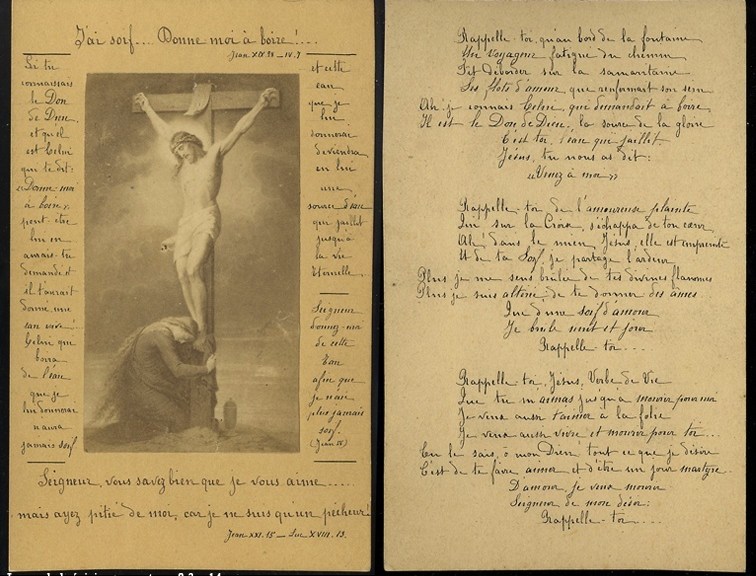 J'ai soif.... Donne moi à boire!....
Jean XIX.28 — IV.7
Si tu
connaissais
le Don
de Dieu,
et quel
est Celui
qui te dit:
«Donne-moi
à boire»,
peut-être
lui en
aurais-tu
demandé et
il t'aurait
donné une
eau vive!
Celui qui
boira
de l'eau
que je
lui donnerai
n'aura
jamais soif
et cette
eau
que je
lui
donnerai
deviendra
en lui
une
source d'eau
qui jaillit
jusqu'à
la vie
éternelle.
Seigneur
donnez-moi
de cette
Eau
afin que
je n'aie
plus jamais
soif.
(Jean IV)
Seigneur, vous savez bien que je vous aime.....
mais ayez pitié de moi, car je ne suis qu'un pécheur!
Jean XXI.15 — Luc XVIII.13.
Rappelle-toi, qu'au bord de la fontaine
Un Voyageur fatigué du chemin
Fit déborder sur la samaritaine
Les flots d'amour que renfermait son sein
Ah! je connais Celui qui demandait à boire
Il est le Don de Dieu, la source de la gloire
C'est toi, l'eau qui jaillit
Jésus, tu nous as dit:
«Venez à moi»
Rappelle-toi de l'amoureuse plainte
Qui sur la Croix, s'échappa de ton cœur
Ah, dans le mien, Jésus, elle est empreinte
Et de ta Soif je partage l'ardeur
Plus je me sens brûlée de tes divines flammes
Plus je suis altérée de te donner des âmes
Que d'une soif d'amour
Je brûle nuit et jour
Rappelle-toi...
Rappelle-toi, Jésus, Verbe de Vie
Que tu m'aimas jusqu'à mourir pour moi
Je veux aussi t'aimer à la folie
Je veux aussi vivre et mourir pour toi...
Tu le sais, ô mon Dieu tout ce que je désire
C'est de te faire aimer et d'être un jour martyre..
D'amour, je veux mourir
Seigneur de mon désir:
Rappelle-toi...